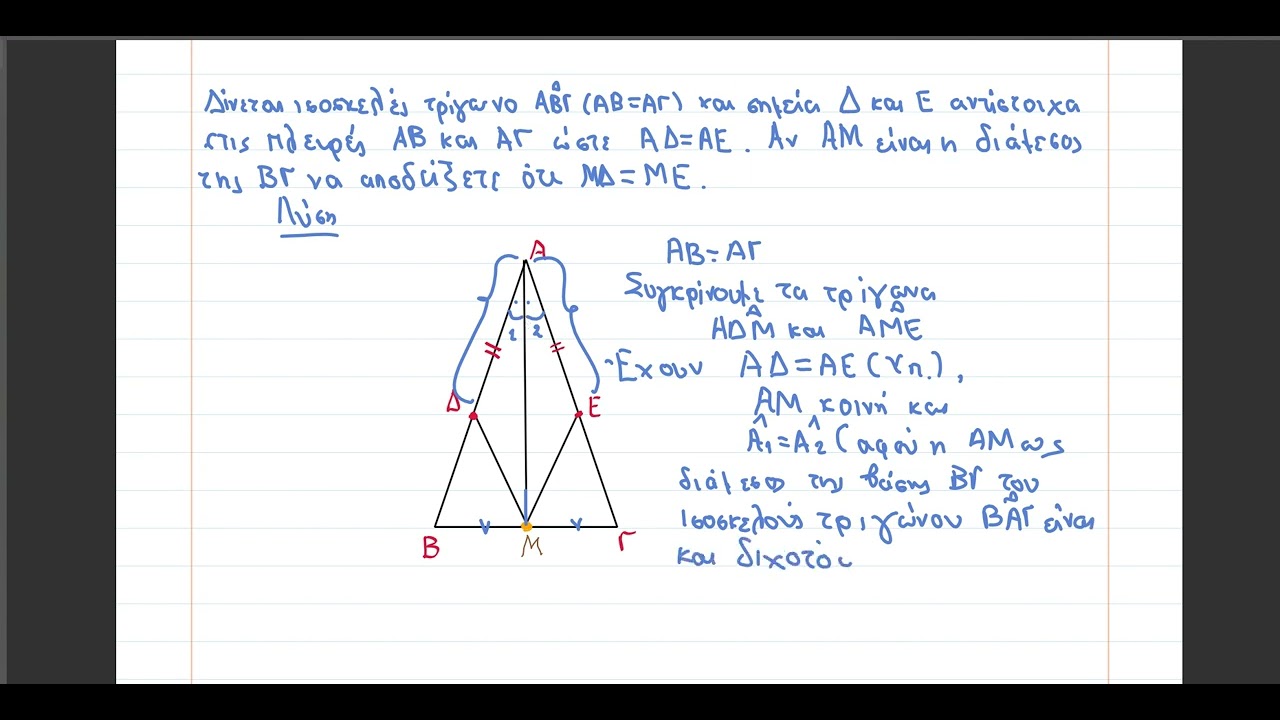 Δίνεται ισοσκελές τρίγωνο ΑΒ̂Γ (ΑΒ=ΑΓ) και σημεία Δ και Ε αντίστοιχα
στις πλευρές ΑΒ και ΑΓ ώστε ΑΔ=ΑΕ. Αν ΑΜ είναι η διάμεσος
της ΒΓ να αποδείξετε ότι ΜΔ=ΜΕ.
Λύση
ΑΒ=ΑΓ
Συγκρίνουμε τα τρίγωνα
ΑΔ̂Μ και ΑΜ̂Ε
Έχουν ΑΔ=ΑΕ (υπ.),
ΑΜ κοινή και
Â1=Â2 (αφού η ΑΜ ως
διάμεσο της βάσης ΒΓ του
ισοσκελούς τριγώνου ΒΑ̂Γ είναι
και διχοτό
Α
1 2
Δ Ε
Β Μ Γ